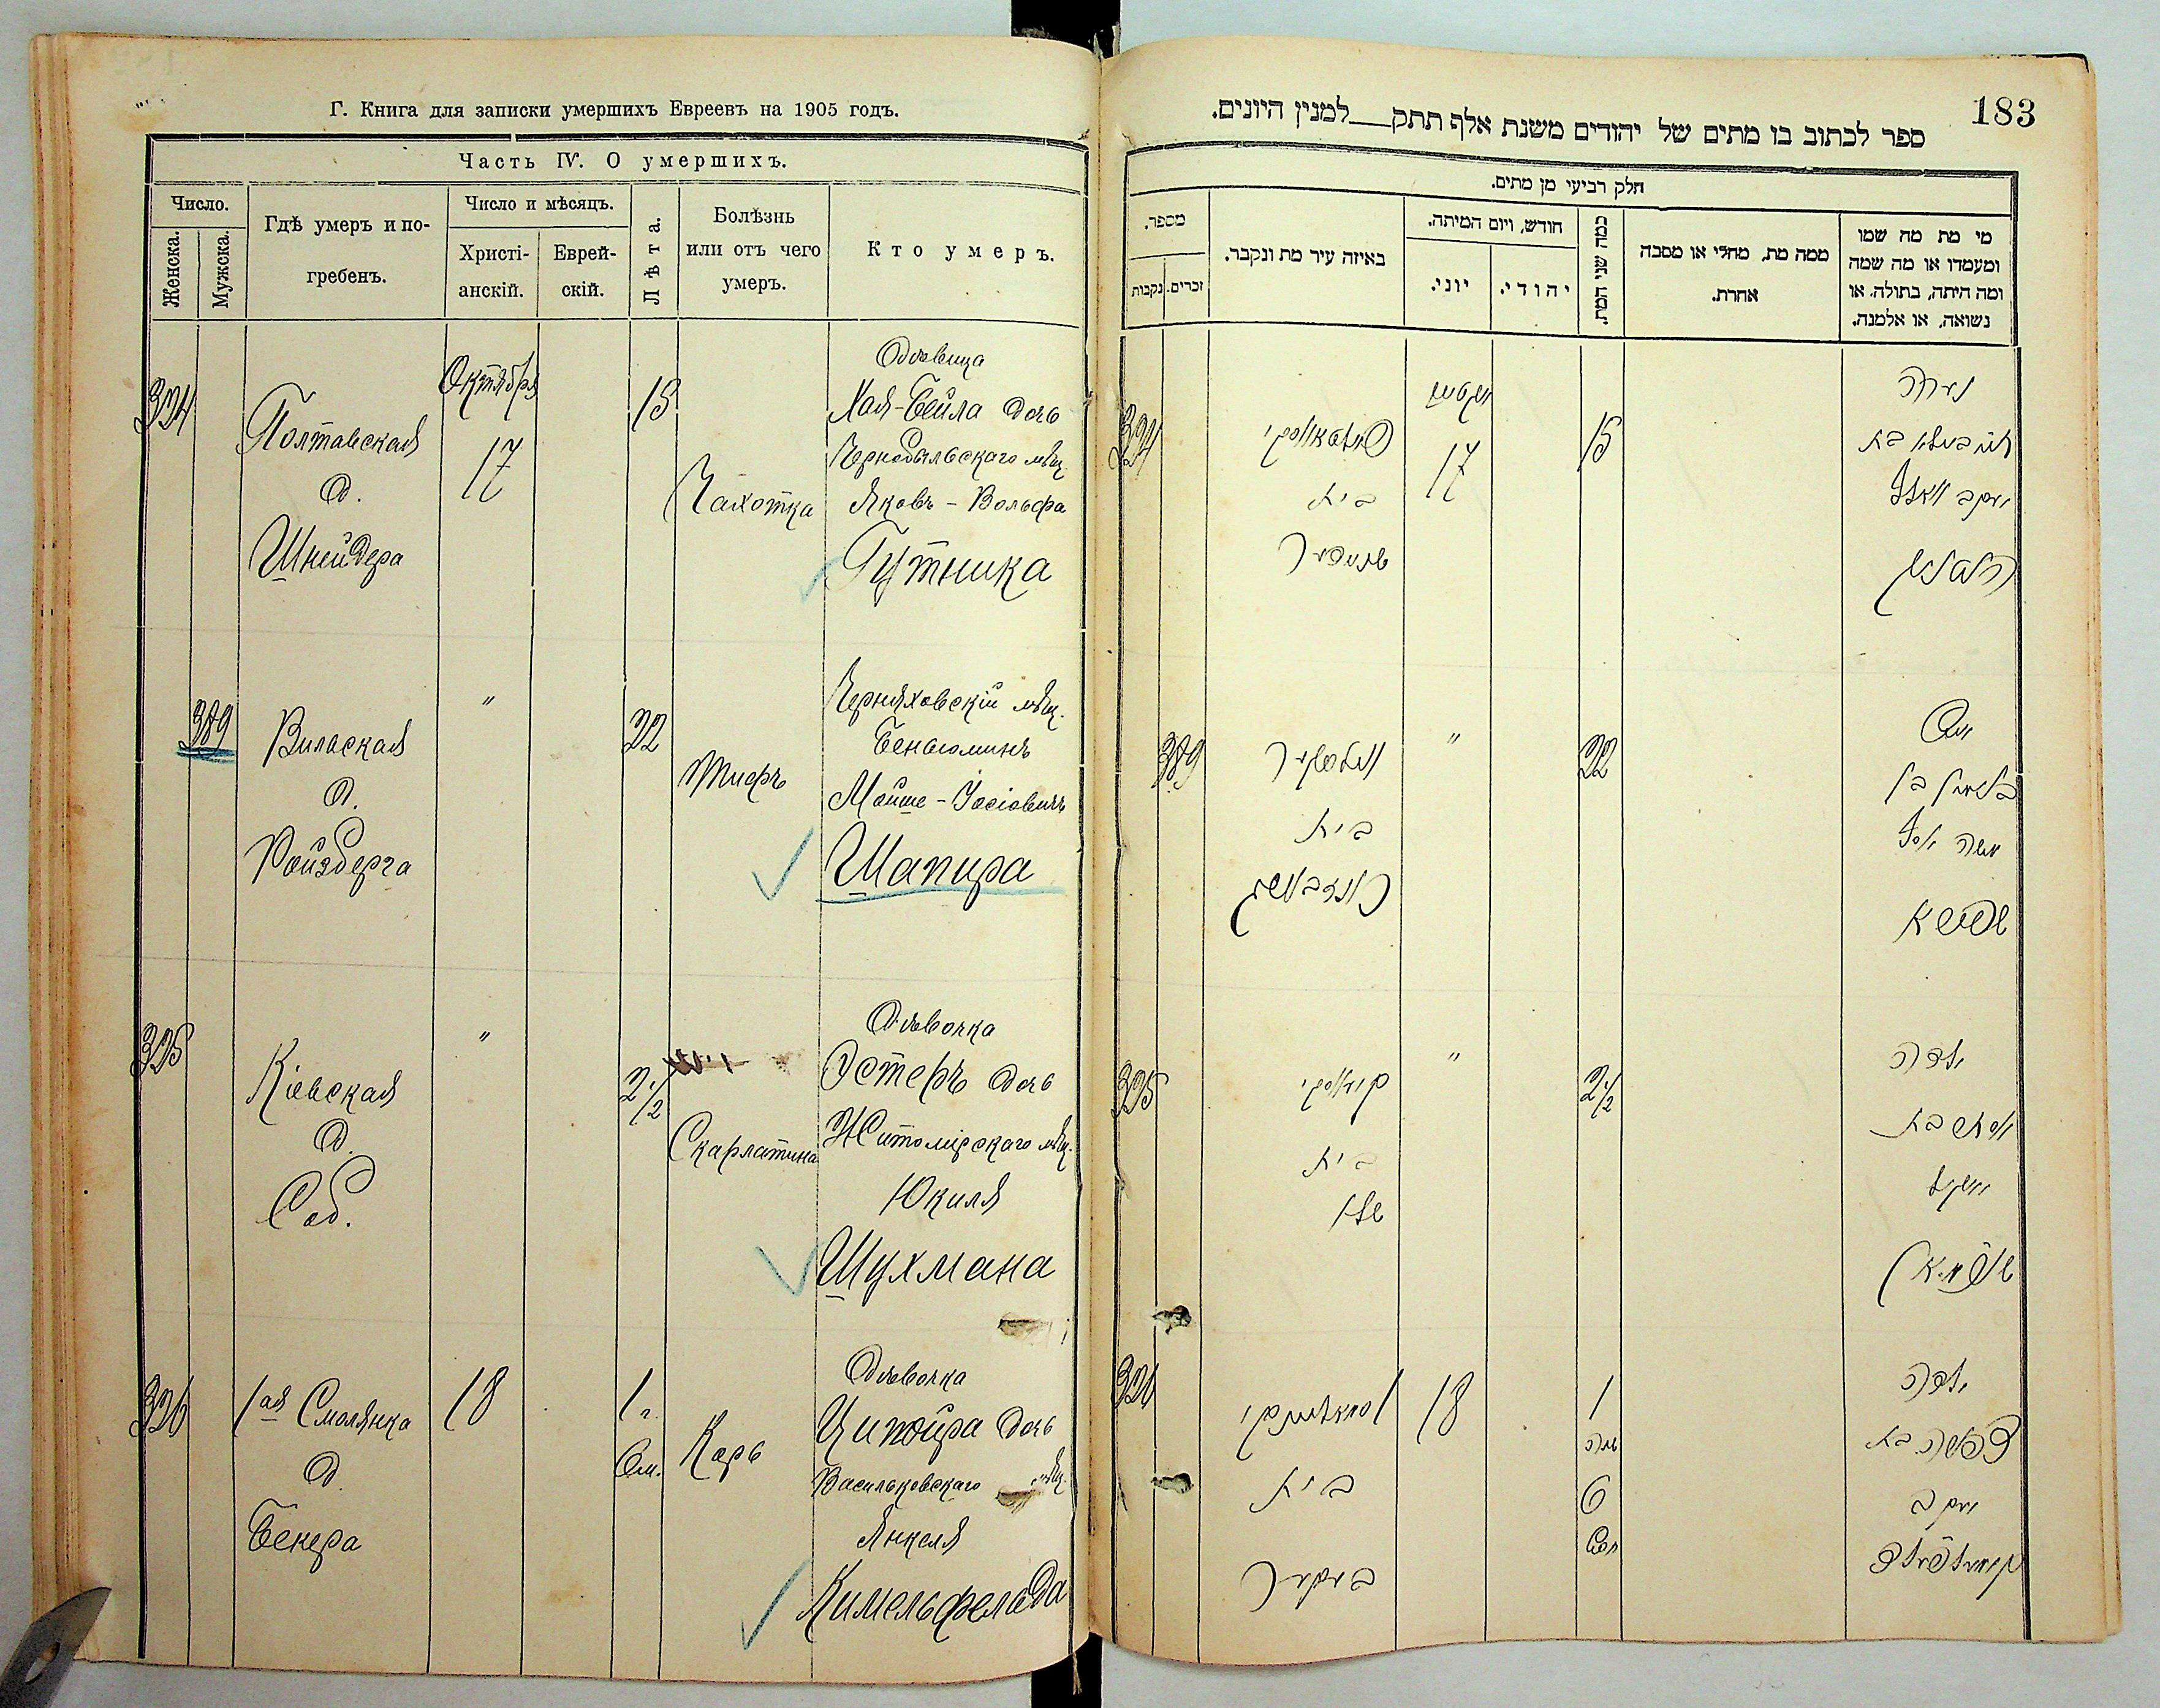 Г. Книга для записки умершихъ Евреевъ на 1905 годъ.
Часть IV. О умершихъ.
Число.
Женска.
Мужска.
Гдѣ умеръ и по-
гребенъ.
Число и мѣсяцъ.
Христі-
анскій.
Еврей-
скій.
Лѣта.
Болѣзнь
или отъ чего
умеръ.
Кто умеръ.
324
Полтавская
д.
Шнейдера
Октября
17
15
Чахотка
Дѣвица
Хая-Бейла дочь
Чернобыльскаго мѣщ.
Яковъ-Вольфа
Гутника
389
Вилаская
д.
Ройзберга
"
22
Тифъ
Черняховскій мѣщ.
Беньюминъ
Мойше-Іосіовичъ
Шапира
325
Кіевская
д.
Соб.
"
2 1/2
Скарлатина
Дѣвочка
Эстеръ дочь
Житомірскаго мѣщ.
Юкиля
Шухмана
326
1ая Смолянка
д.
Бекера
18
1 г.
6 м.
Корь
Дѣвочка
Ципойра дочь
Васильковскаго мѣщ.
Янкеля
Кимельфельда
183
ספר לכתוב בו מתים של יהודים משנת אלף תתק למנין היונים.
חלק רביעי מן מתים.
מספר.
נקבות
זכרים.
באיזה עיר מת ונקבר.
חודש, ויום המיתה.
יוני.
יהודי.
כמה שני המת.
ממה מת, מחלי או מסבה
אחרת.
מי מת מה שמו
ומעמדו או מה שמה
ומה היתה, בתולה, או
נשואה, או אלמנה.
324
בית
שניידער
17
15
נערה
חיה ביילא בת
יעקב וואלף
389
בית
"
22
משה יוסף
שפירא
325
בית
שלו
"
2 1/2
ילדה
אסתר בת
שוחמאן
326
בית
בעקער
18
1
שנה
6
ילדה
צפורה בת
יעקב
קימעלפעלד